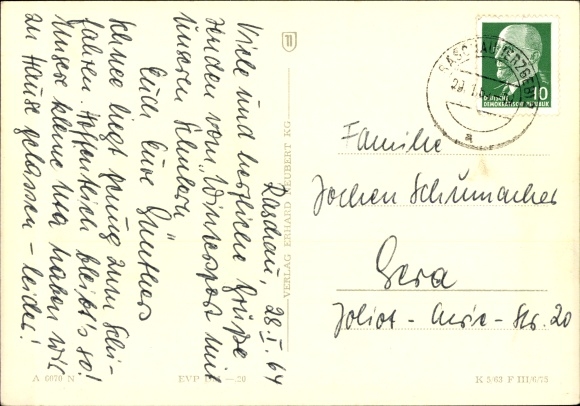 Raschau, 28.I.64
Viele und herzliche Grüße
senden vom "Wintersport mit
unseren Schülern"
Euch Eure Günthers
Schnee liegt genug zum Ski-
fahren. Hoffentlich bleibt's so!
Unsere kleine Ina haben wir
zu Hause gelassen - leider!
11
VERLAG ERHARD NEUBERT KG
RASCHAU (ERZGEB)
a
10
DEUTSCHE
DEMOKRATISCHE REPUBLIK
Familie
Jochen Schumacher
Gera
Joliot-Curie-Str. 20
A 6070 N
EVP DM —.20
K 5/63 F III/6/75